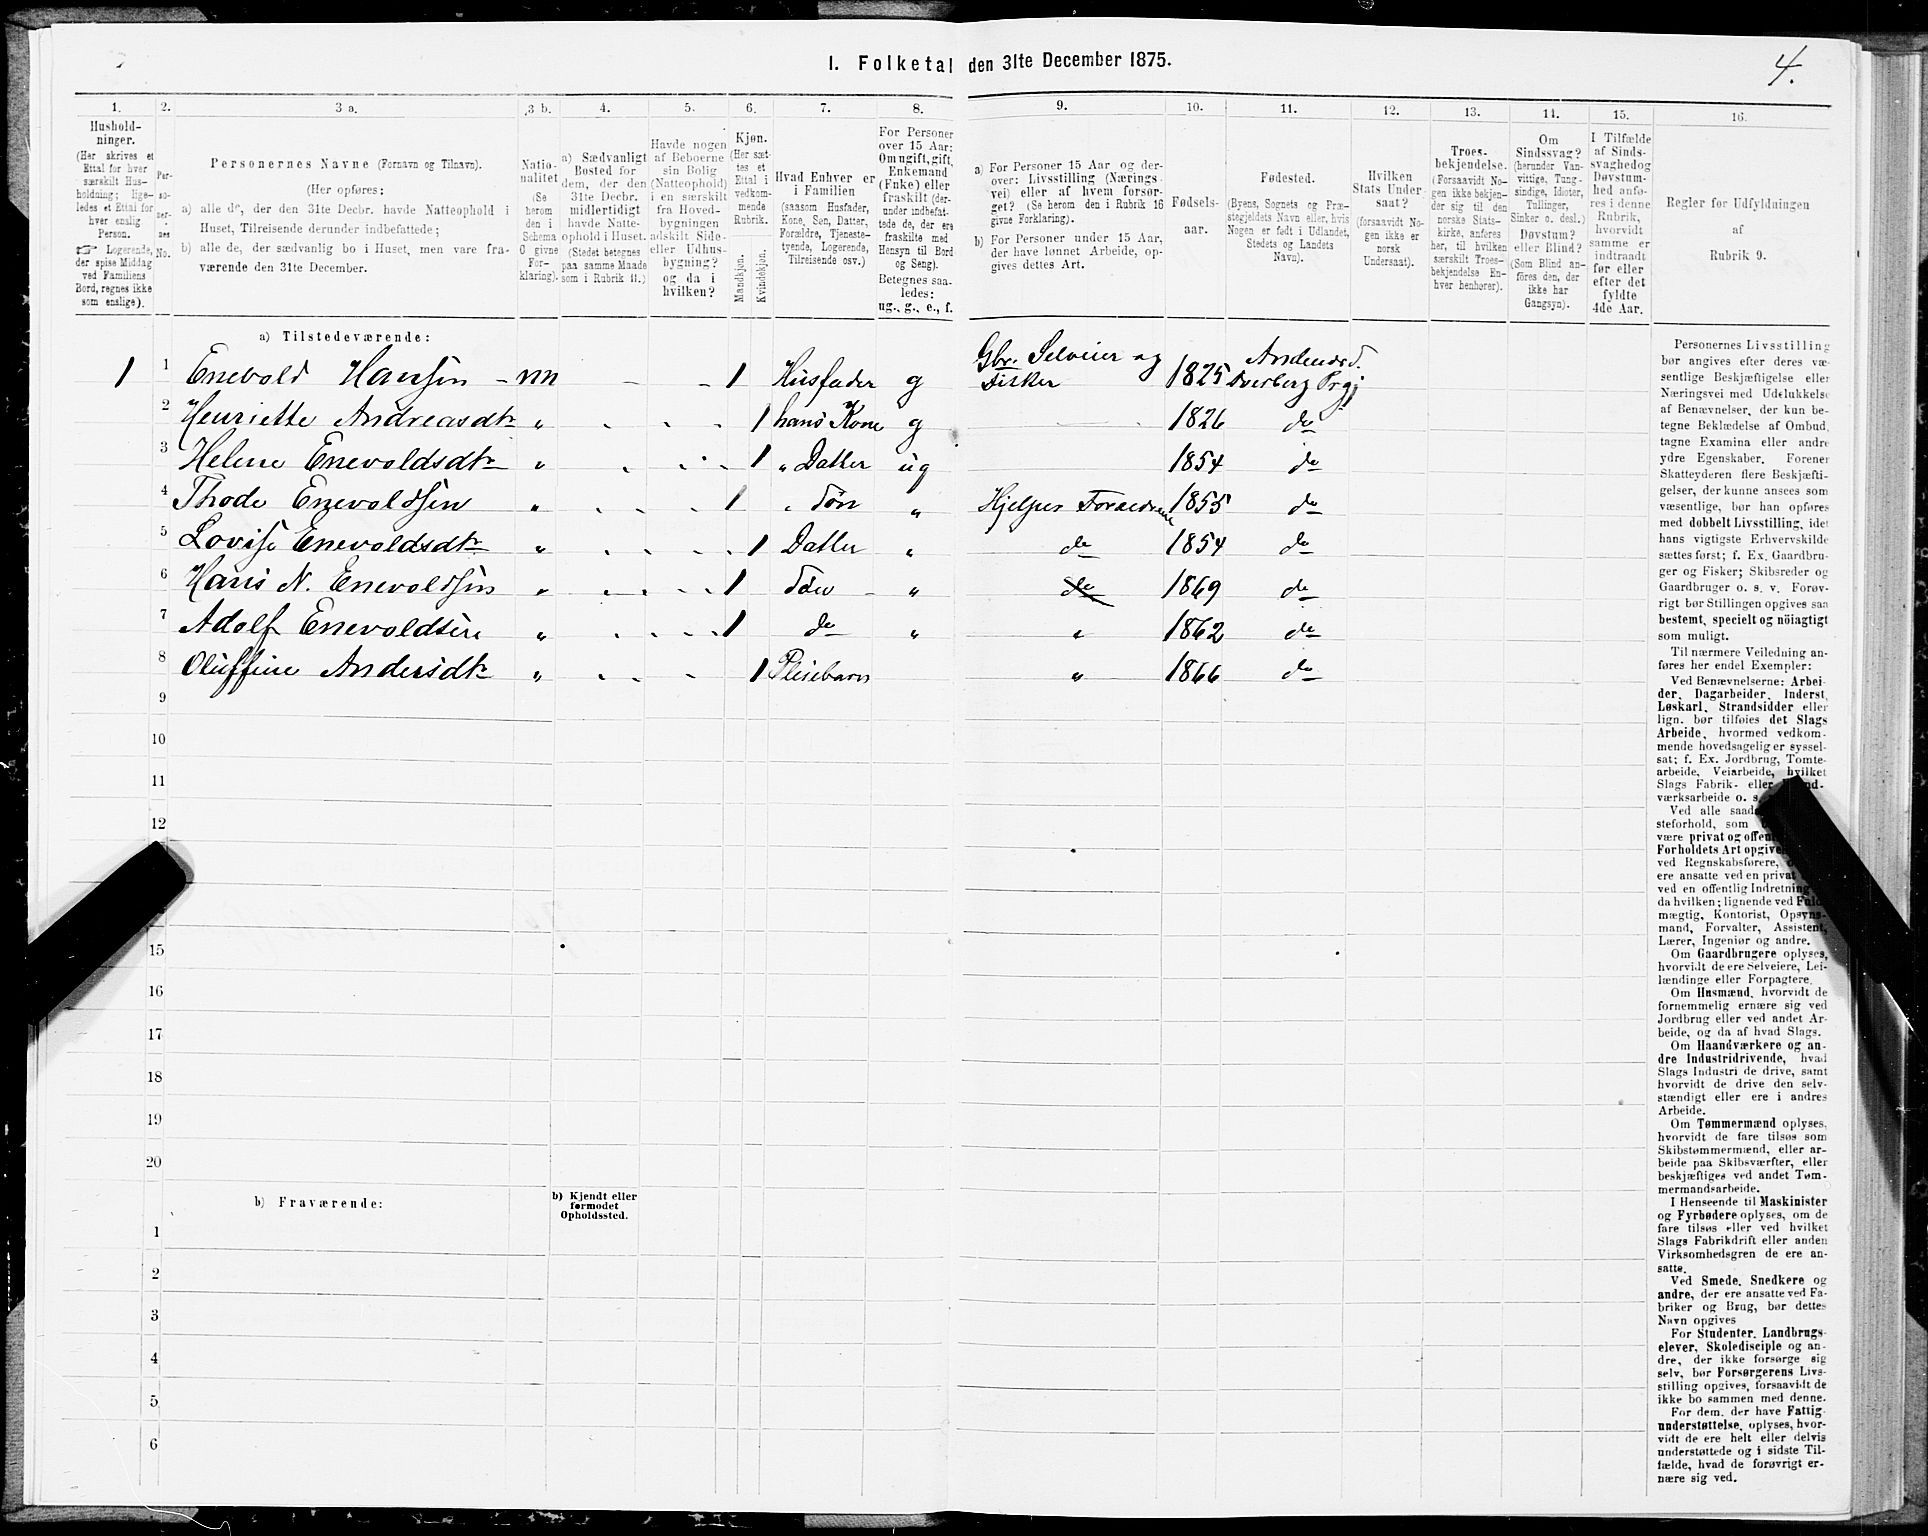 I. Folketal den 31te December 1875.
4.
1.
2.
3 a.
3 b.
4.
5.
6.
7.
8.
9.
10.
11.
12.
13.
14.
15.
16.
Hushold-
ninger.
(Her skrives et
Ettal for hver
særskilt Hus-
holdning; lige-
ledes et Ettal for
hver enlig
Person.
☞ Logerende,
der spise Middag
ved Familiens
Bord, regnes ikke
som enslige).
Per-
so-
ner-
nes
No.
Personernes Navne (Fornavn og Tilnavn).
(Her opføres:
a) alle de, der den 31te Decbr. havde Natteophold i
Huset, Tilreisende derunder indbefattede;
b) alle de, der sædvanlig bo i Huset, men vare fra-
værende den 31te December.
Natio-
nalitet
(Se
herom
den i
Schema
6 givne
For-
klaring).
a) Sædvanligt
Bosted for
dem, der den
31te Decbr.
midlertidigt
havde Natte-
ophold i Huset.
(Stedet betegnes
paa samme Maade
som i Rubrik 11.)
Havde nogen
af Beboerne
sin Bolig
(Natteophold)
i en særskilt
fra Hoved-
bygningen
adskilt Side-
eller Udhus-
bygning?
og da i
hvilken?
Kjøn.
(Her sæt-
tes et
Ettal i
vedkom-
mende
Rubrik.
Mandkjøn.
Kvindekjøn.
Hvad Enhver er
i Familien
(saasom Husfader,
Kone, Søn, Datter,
Forældre, Tjeneste-
tyende, Logerende,
Tilreisende osv.)
For Personer
over 15 Aar:
Om ugift, gift,
Enkemand
(Enke) eller
fraskilt (der-
under indbefat-
tede de, der ere
fraskilte med
Hensyn til Bord
og Seng).
Betegnes saa-
ledes:
ug., g., e., f.
a) For Personer 15 Aar og der-
over: Livsstilling (Nærings-
vei) eller af hvem forsør-
get? (Se herom den i Rubrik 16
givne Forklaring).
b) For Personer under 15 Aar,
der have lønnet Arbeide, op-
gives dettes Art.
Fødsels-
aar.
Fødested.
(Byens, Sognets og Præ-
stegjeldets Navn eller, hvis
Nogen er født i Udlandet,
Stedets og Landets
Navn).
Hvilken
Stats Under-
saat?
(forsaavidt No-
gen ikke er
norsk
Undersaat).
Troes-
bekjendelse.
(Forsaavidt No-
gen ikke bekjen-
der sig til den
norske Stats-
kirke, anføres
her, til hvilken
særskilt Troes-
bekjendelse En-
hver henhører).
Om
Sindssvag?
(herunder Van-
vittige, Tung-
sindige, Idioter,
Tullinger,
Sinker o. desl.)
Døvstum?
eller Blind?
(Som Blind an-
føres den, der
ikke har
Gangsyn).
I Tilfælde
af Sinds-
svaghed og
Døvstum-
hed anfø-
res i denne
Rubrik,
hvorvidt
samme er
indtraadt
før eller
efter det
fyldte
4de Aar.
Regler før Udfyldningen
af
Rubrik 9.
a) Tilstedeværende:
1 1 Enevold Hansen - nn - - 1 Husfader g Gbr. Selveier og Fisker 1825 Andenæs S. Dverberg Prgj
2 Henriette Andreasdtr " 1 hans Kone g 1826 do
3 Helene Enevoldsdtr " 1 " Datter ug 1854 do
4 Thode Enevoldsen " 1 " Søn " Hjelper Forældrene 1855 do
5 Lovise Enevoldsdtr " 1 Datter " do 1854 do
6 Hans N. Enevoldsen " 1 Søn - " do 1869 do
7 Adolf Enevoldsen " 1 do " " 1862 do
8 Oluffine Andersdtr " 1 Pleiebarn " 1866 do
9
10
11
12
15
16
17
18
19
20
b) Fraværende:
b) Kjendt eller
formodet
Opholdssted.
1
2
3
4
5
6
Personernes Livsstilling
bør angives efter deres væ-
sentlige Beskjæftigelse eller
Næringsvei med Udelukkelse
af Benævnelser, der kun be-
tegne Beklædelse af Ombud,
tagne Examina eller andre
ydre Egenskaber. Forener
Skatteyderen flere Beskjæfti-
gelser, der kunne ansees som
væsentlige, bør han opføres
med dobbelt Livsstilling, idet
hans vigtigste Erhvervskilde
sættes først; f. Ex. Gaardbru-
ger og Fisker; Skibsreder og
Gaardbruger o. s. v. Forøv-
rigt bør Stillingen opgives saa
bestemt, specielt og nöiagtigt
som muligt.
Til nærmere Veiledning an-
føres her endel Exempler:
Ved Benævnelserne: Arbei-
der, Dagarbeider, Inderst,
Løskarl, Strandsidder eller
lign. bør tilføies det Slags
Arbeide, hvormed vedkom-
mende hovedsagelig er syssel-
sat; f. Ex. Jordbrug, Tomte-
arbeide, Veiarbeide, hvilket
Slags Fabrik- eller
værksarbeide o. s.
Ved alle
steforhold, som
være privat og
Forholdets Art
ved Regnskabsførere,
ere ansatte ved en privat
ved en offentlig Indretning
da hvilken; lignende ved
mægtig, Kontorist, Opsyns-
mand, Forvalter, Assistent,
Lærer, Ingeniør og andre.
Om Gaardbrugere oplyses,
hvorvidt de ere Selveiere, Lei-
lændinge eller Forpagtere.
Om Husmænd, hvorvidt de
fornemmelig ernære sig ved
Jordbrug eller ved andet Ar-
beide, og da af hvad Slags.
Om Haandværkere og an-
dre Industridrivende, hvad
Slags Industri de drive, samt
hvorvidt de drive den selv-
stændigt eller ere i andres
Arbeide.
Om Tømmermænd oplyses,
hvorvidt de fare tilsøs som
Skibstømmermænd, eller ar-
beide paa Skibsværfter, eller
beskjæftiges ved andet Tøm-
mermandsarbeide.
I Henseende til Maskinister
og Fyrbødere oplyses, om de
fare tilsøs eller ved hvilket
Slags Fabrikdrift eller anden
Virksomhedsgren de ere an-
satte.
Ved Smede, Snedkere og
andre, der ere ansatte ved Fa-
briker og Brug, bør dettes
Navn opgives
For Studenter, Landbrugs-
elever, Skoledisciple og an-
dre, der ikke forsørge sig
selv, bør Forsørgerens Livs-
stilling opgives, forsaavidt de
ikke bo sammen med denne.
For dem, der have Fattig-
understøttelse, oplyses, hvor-
vidt de ere helt eller delvis
understøttede og i sidste Til-
fælde, hvad de forøvrigt er-
nære sig ved.